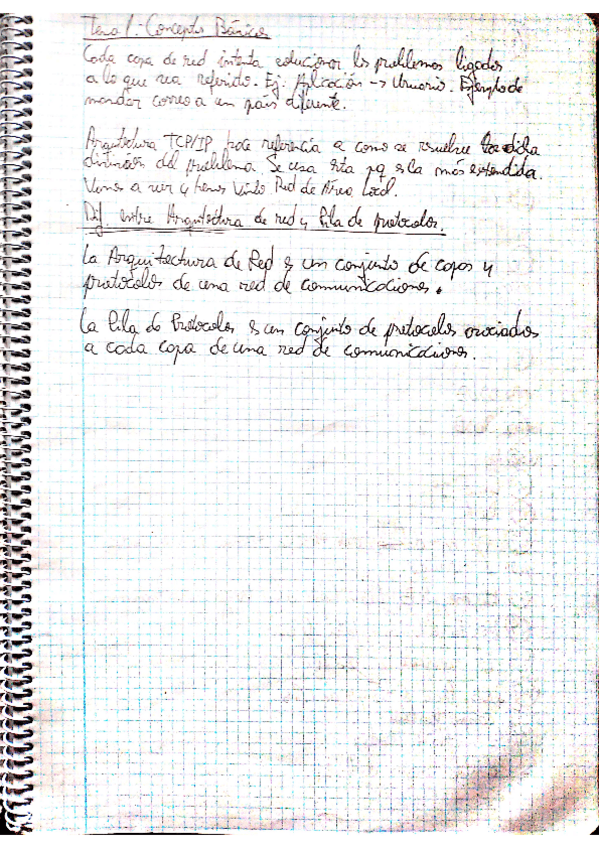 Tema 1: Conceptos Básicos
Cada capa de red intenta solucionar los problemas ligados
a lo que sea referido. Ej: Aplicación -> Usuario. Ejemplo de
mandar correo a un país diferente.
Arquitectura TCP/IP hace referencia a como se resuelve
del problema. Se usa esta pq es la más extendida.
Vamos a ver y hemos visto Red de Área Local.
Dif. entre Arquitectura de red y Pila de protocolos.
La Arquitectura de Red es un conjunto de capas y
protocolos de una red de comunicaciones.
La Pila de Protocolos es un conjunto de protocolos asociados
a cada capa de una red de comunicaciones.